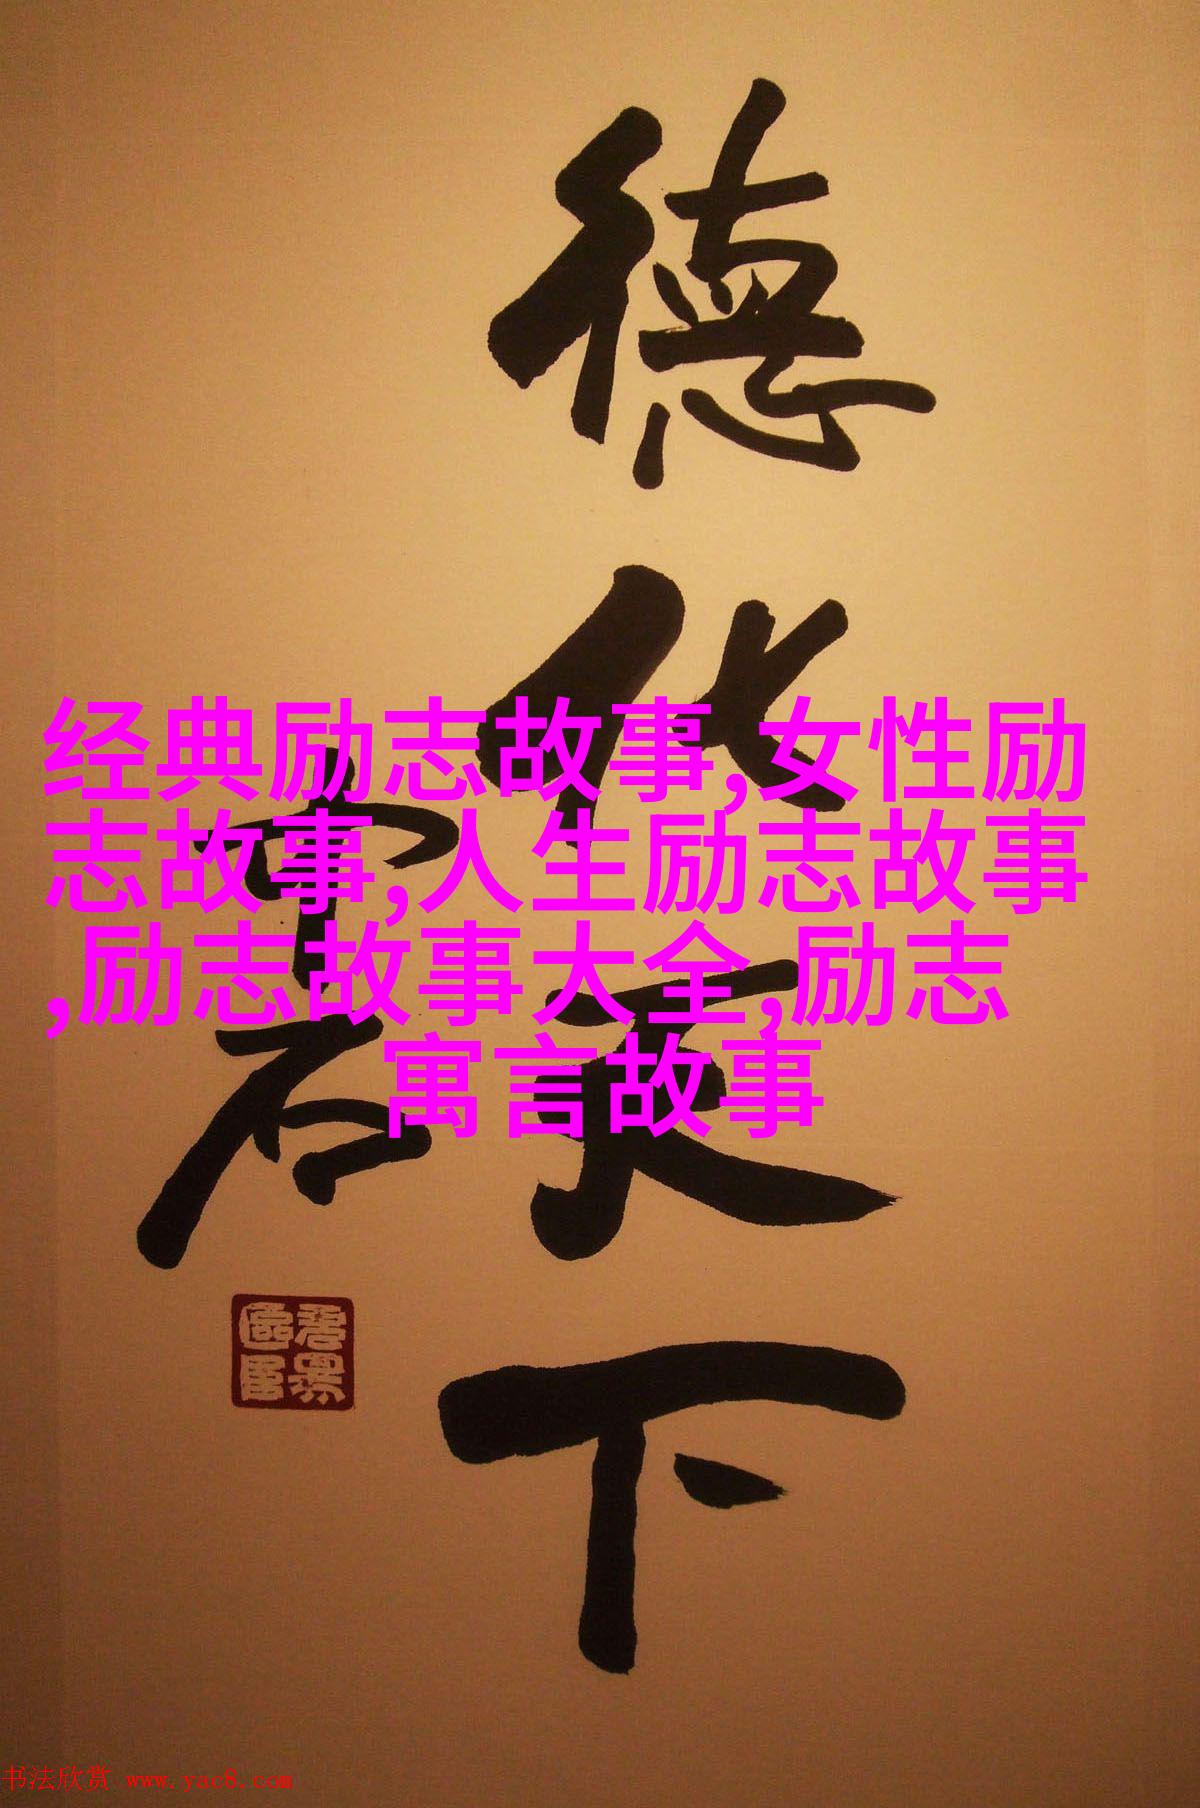 德化天下
经典励志故事,女性励
志故事,人生励志故事
,励志故事大全,励志
寓言故事
书法欣赏 www.yac8.com